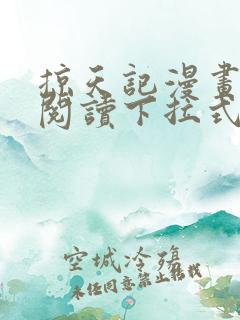 掠天記漫畫
閱讀下拉式
空城冷殤
未经同意禁止转载